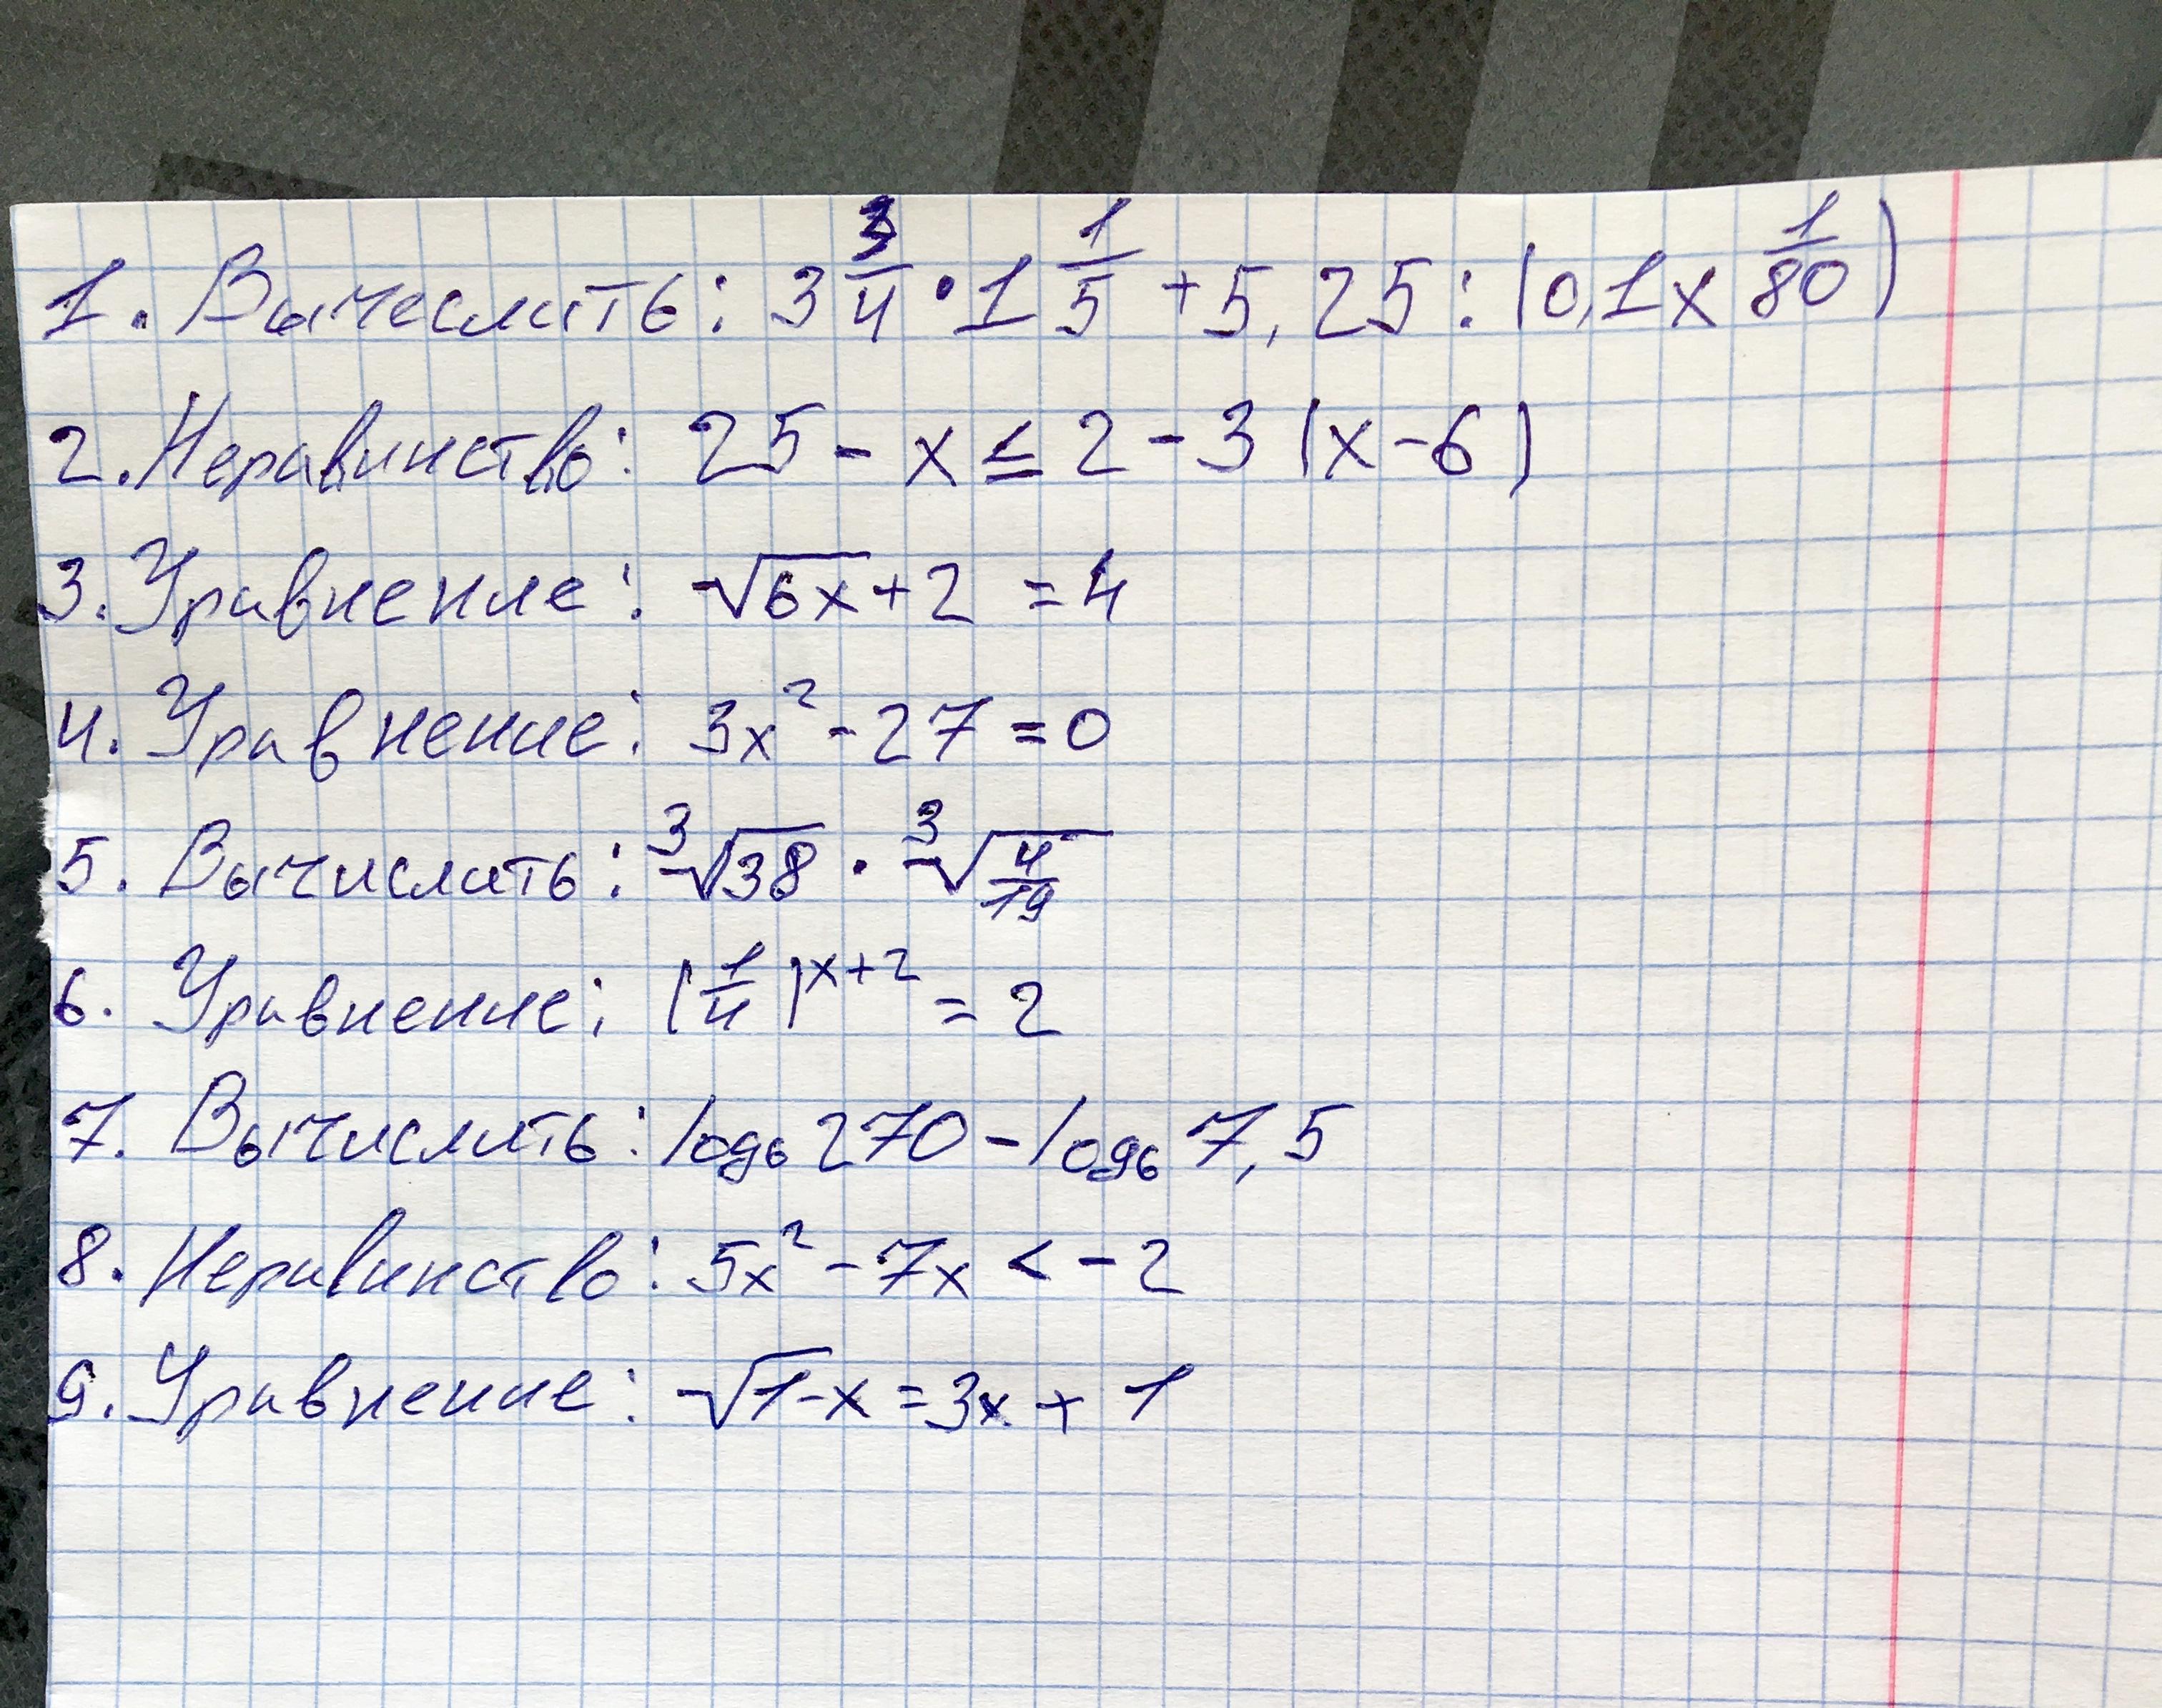 1. Вычеслить: 3 3/4 · 1 1/5 + 5,25 : (0,1 x 1/80)
2. Неравинство: 25 - x ≤ 2 - 3 (x - 6)
3. Уравнение: √6x + 2 = 4
4. Уравнение: 3x² - 27 = 0
5. Вычислить: ³√38 · ³√4/19
6. Уравнение: (1/4)ˣ⁺² = 2
7. Вычислить: log₆ 270 - log₆ 7,5
8. Неравинство: 5x² - 7x < - 2
9. Уравнение: √1-x = 3x + 1